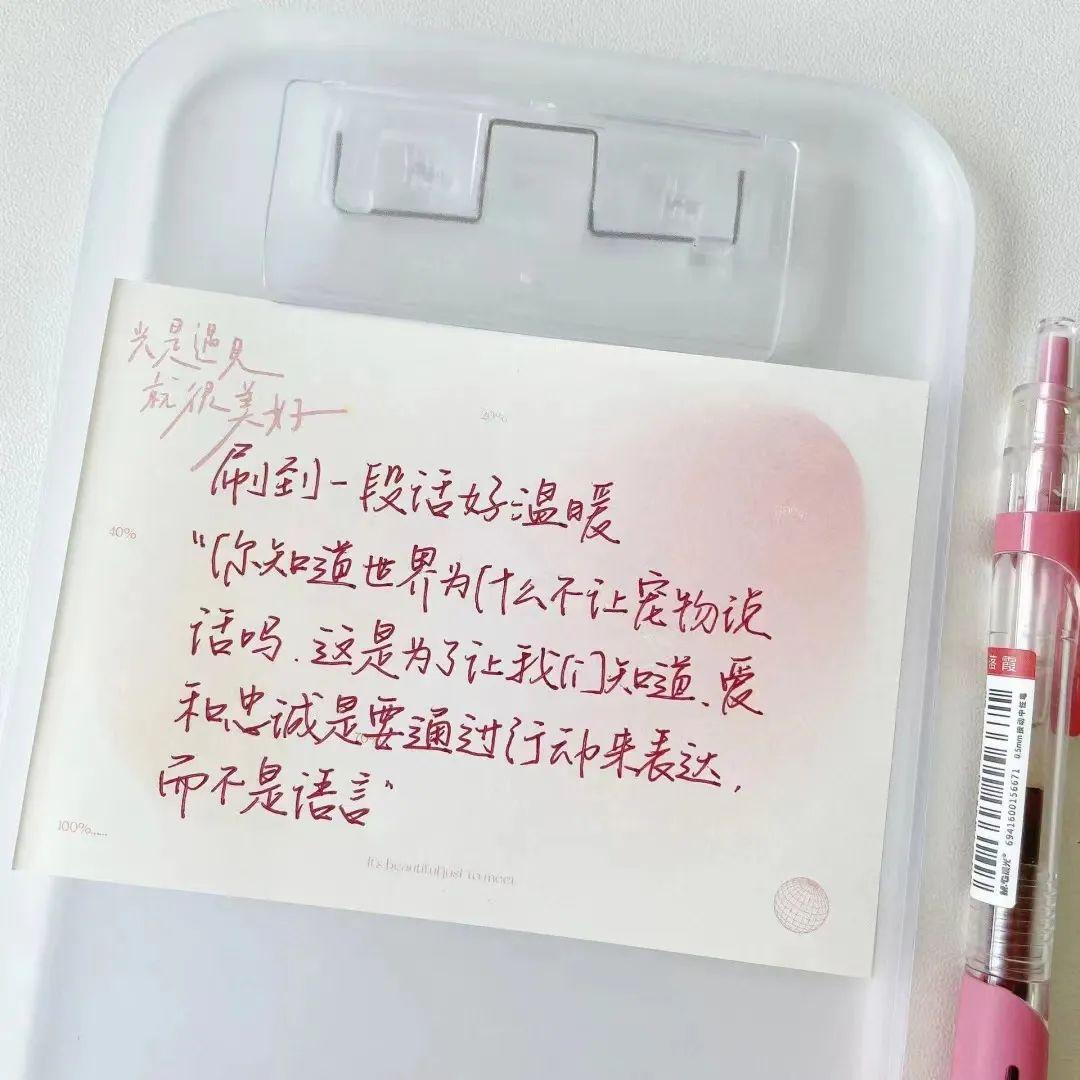 光是遇见
就很美好
20%
刷到一段话好温暖
40%
“你知道世界为什么不让宠物说
话吗.这是为了让我们知道、爱
和忠诚是要通过行动来表达,
而不是语言”
100%......
It's beautiful just to meet
0.5mm按动中性笔
6941600156671